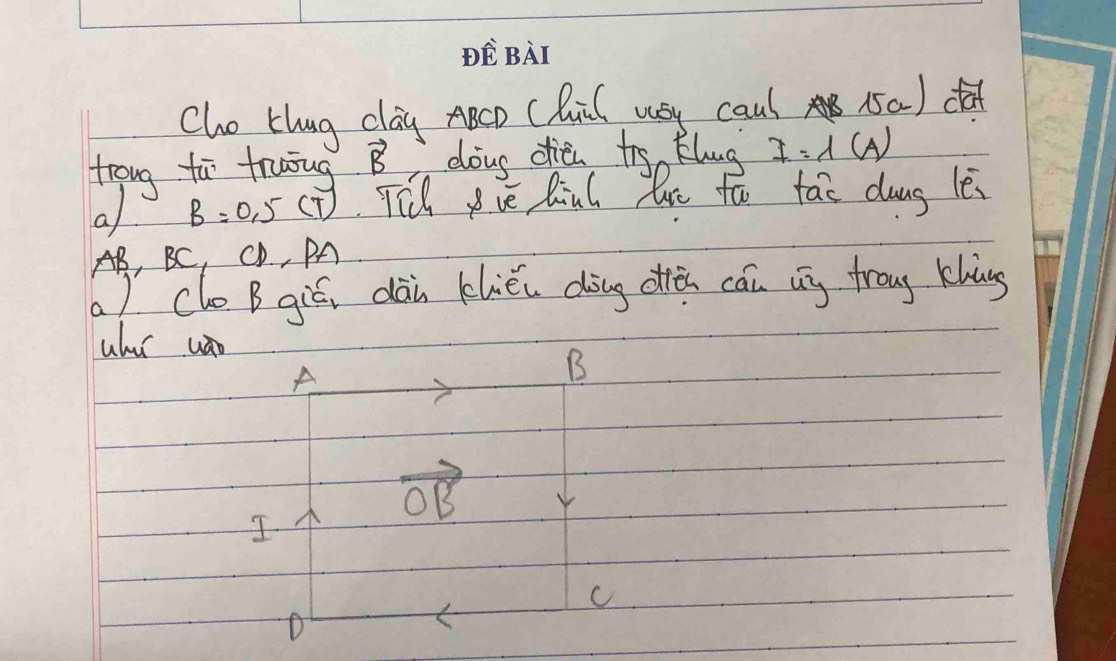 ĐỀ BÀI
Cho khung dây ABCD (hình vuông cạnh 15cm) đặt
trong từ trường B, dòng điện trg khung I = 1 (A)
a) B = 0,5 (T). Tích & vẽ hình lực từ tác dụng lên
AB, BC, CD, DA
a) Cho B giảm dần khiến dòng điện cảm ứng trong khung
như nào
A B
OB
I
D C